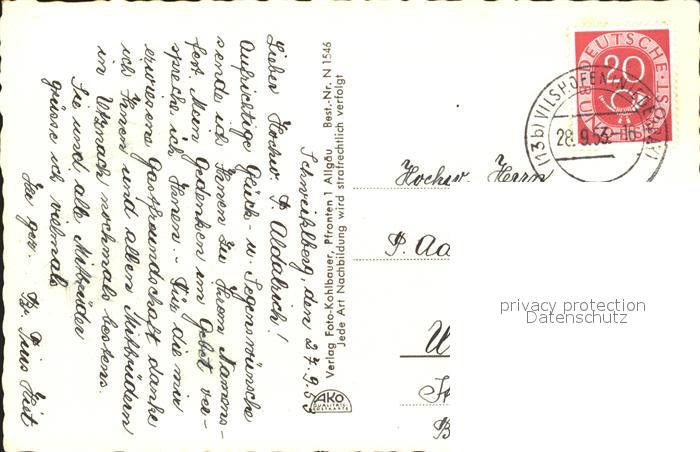 Schweiklberg, den 27.9.53
Lieber Hochw. P. Aldabrich!
Aufrichtige Glück- u. Segenswünsche
sende ich Ihnen zu Ihrem Namens-
fest. Mein Gedenken im Gebet ver-
spreche ich Ihnen. - Für die mir
erwiesene Gastfreundschaft danke
ich Ihnen und allen Mitbrüdern
in Uznach nochmals bestens.
Sie und alle Mitbrüder
grüsse ich vielmals
Ihr ger. Br. Pius
Verlag Foto-Kohlbauer, Pfronten 1 Allgäu Best.-Nr. N 1546
Jede Art Nachbildung wird strafrechtlich verfolgt
AKO
QUALITÄTS-
POSTKARTE
DEUTSCHE
BUNDESPOST
20
(13b) VILSHOFEN
28.9.53
Hochw. Herrn
P.
U
privacy protection
Datenschutz